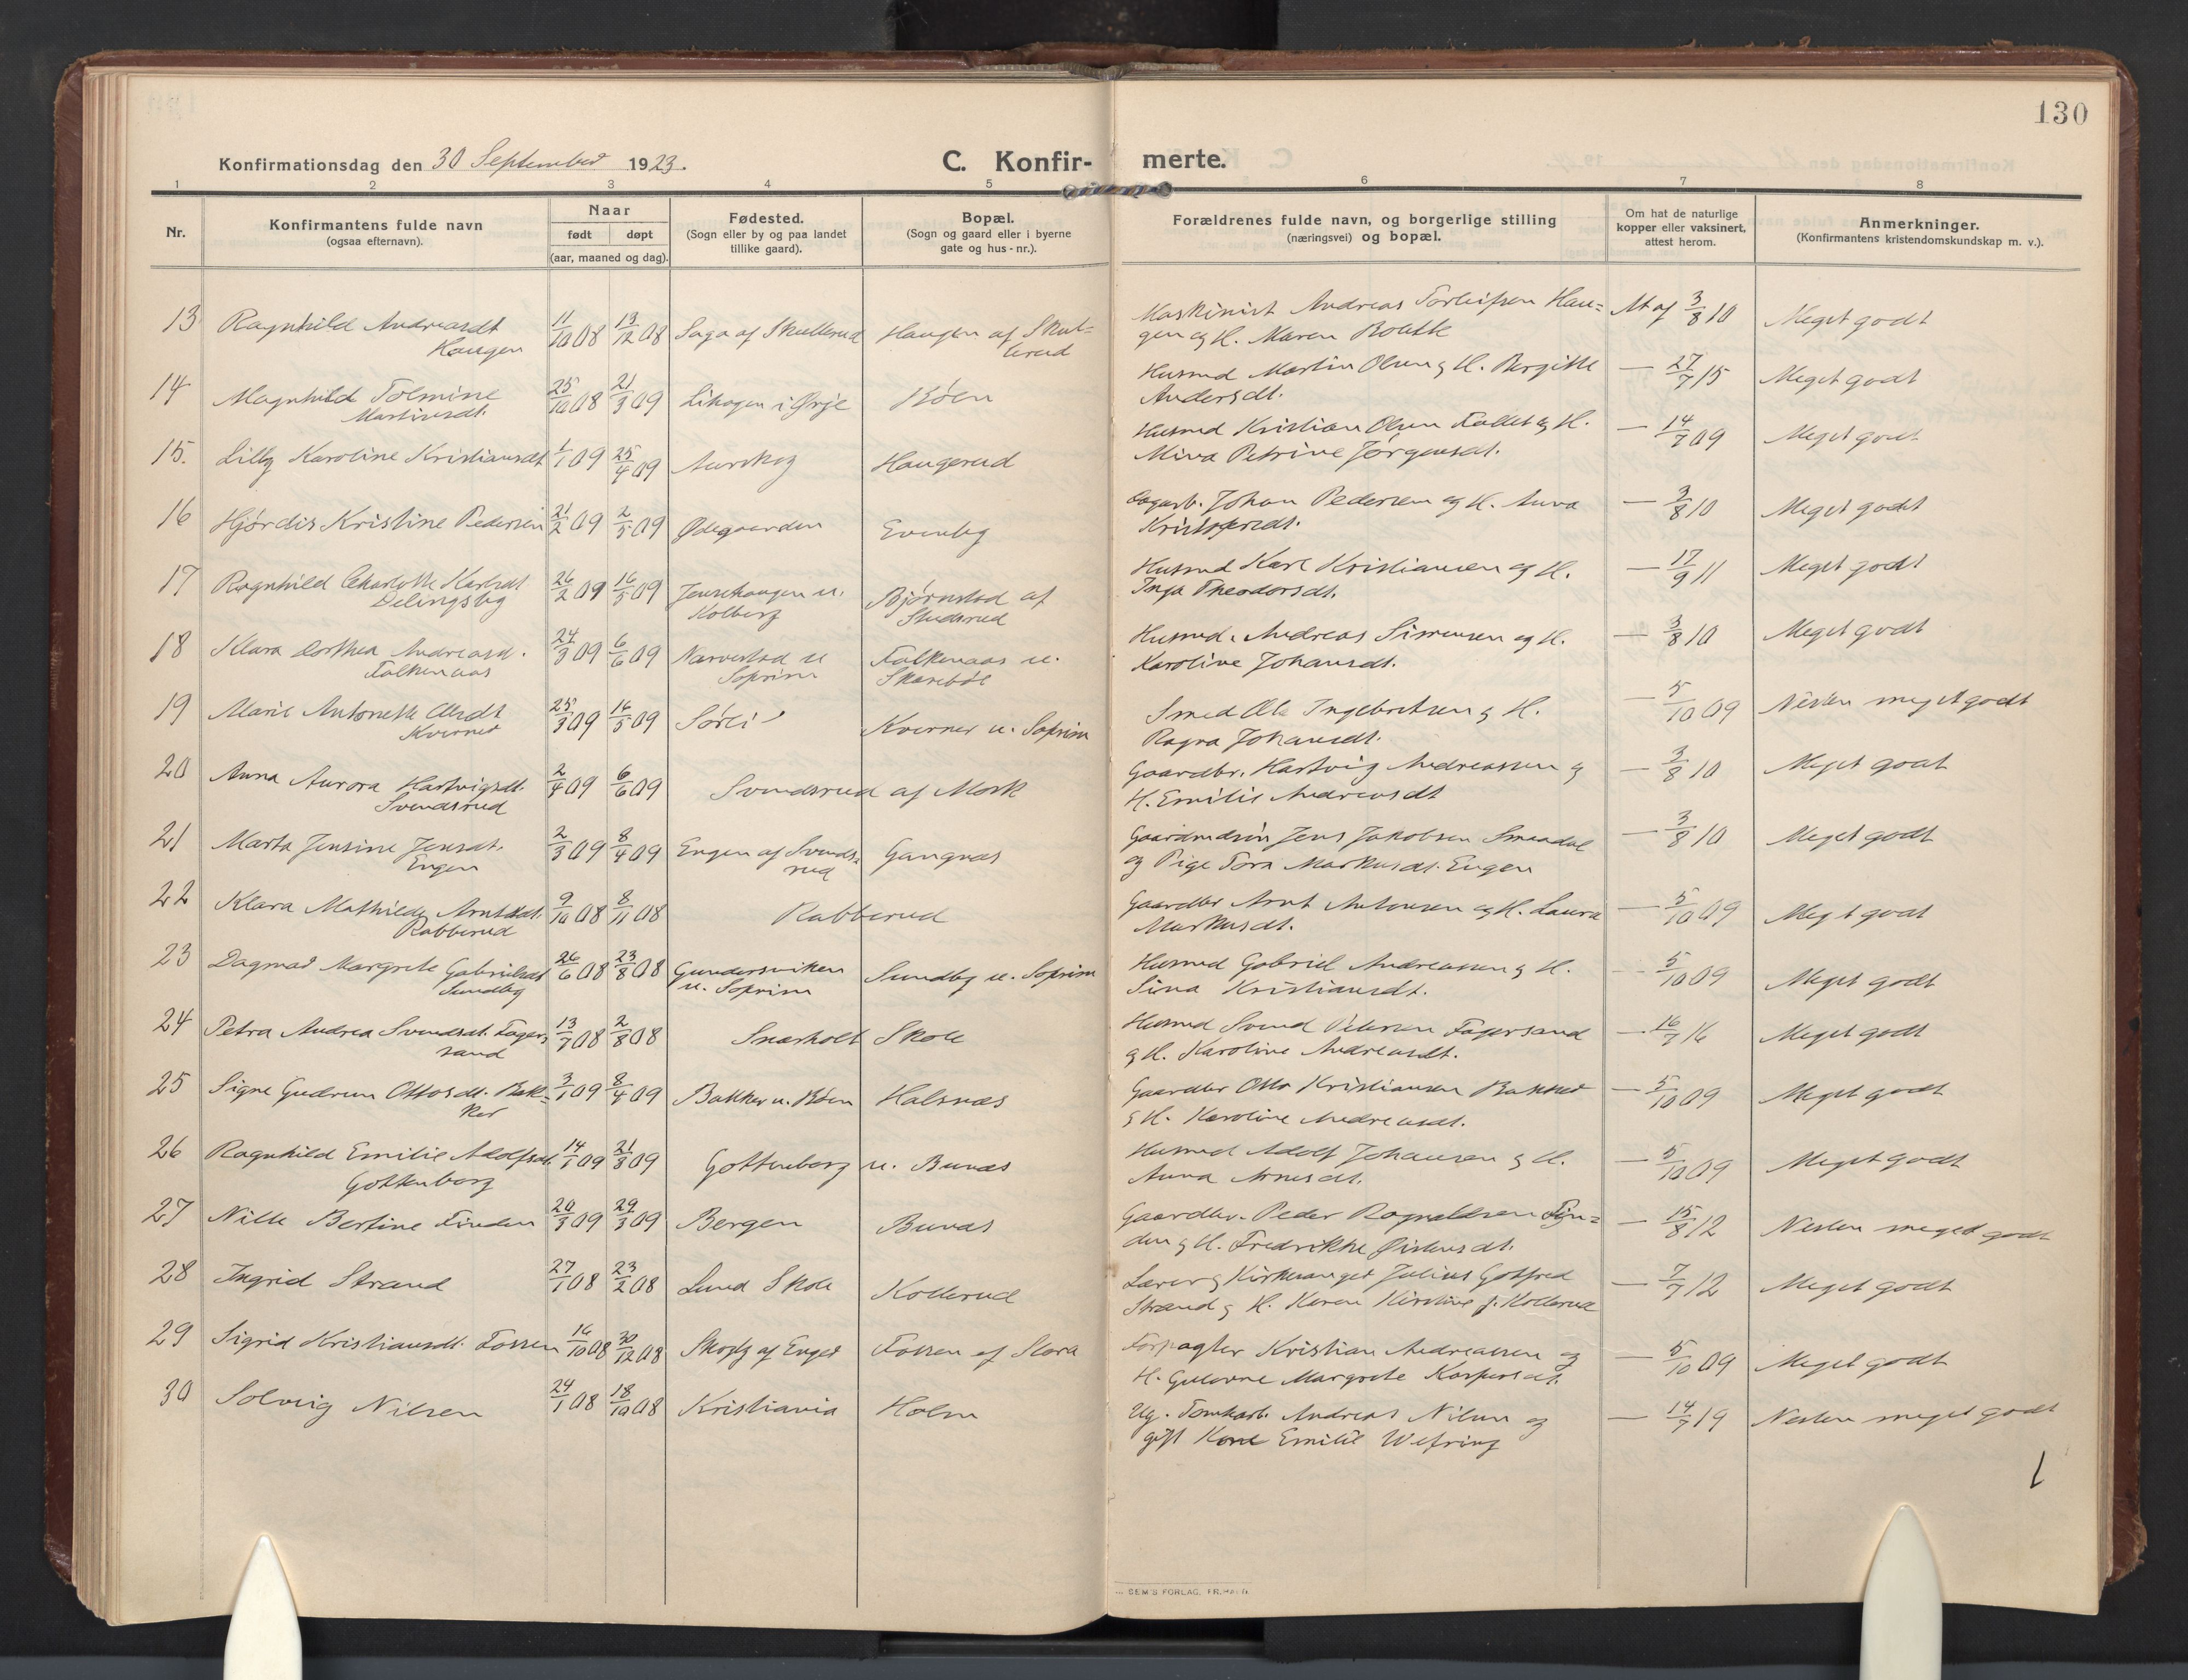 130
Konfirmationsdag den 30 September 1923.
C. Konfir- merte.
1 2 3 4 5 6 7 8
Nr.
Konfirmantens fulde navn
(ogsaa efternavn).
Naar
født døpt
(aar, maaned og dag).
Fødested.
(Sogn eller by og paa landet
tillike gaard).
Bopæl.
(Sogn og gaard eller i byerne
gate og hus-nr.).
Forældrenes fulde navn, og borgerlige stilling
(næringsvei) og bopæl.
Om hat de naturlige
kopper eller vaksinert,
attest herom.
Anmerkninger.
(Konfirmantens kristendomskundskap m. v.).
13 Ragnhild Andreasdt 11/10 08 13/12 08 Saga af Skullerud Haugen af Skul- Maskinist Andreas Torleifsen Hau= At af 3/8 10 Meget godt
Haugen lerud gen og H. Maren
14 Magnhild Tolmine 25/10 08 21/3 09 i Ørje Böen Husmd Martin Olsen og H. Bergitte — 27/7 15 Meget godt
Martinsdt. Andersdt.
15. Lilly Karoline Kristiansdt 1/1 09 25/4 09 Aurskog Haugerud Husmd Kristian Olsen Fallet og H. — 14/7 09 Meget godt
Mina Petrine Jørgensdt.
16 Hjørdis Kristine Pedersen 21/2 09 2/5 09 Ødegaarden Evenby Dagarb. Johan Pedersen og H. Anna — 3/8 10 Meget godt
Kristofersdt.
17 Ragnhild Charlotte Karlsdt 26/2 09 16/5 09 Jensehaugen u. Bjørnstad af Husmd Karl Kristiansen og H. — 17/9 11 Meget godt
Delingsby Kolberg Studsrud Inga Theodorsdt.
18 Klara Dorthea Andreasd. 24/3 09 6/6 09 Narvestad u Falkenaas u. Husmd. Andreas Simensen og H. — 3/8 10 Meget godt
Falkenaas Soprim Skarebøl Karoline Johansdt.
19 Marie Antonette Olesdt 25/3 09 16/5 09 Sørli Kverner u. Soprim Smed Ole Ingebretsen og H. — 5/10 09 Nesten meget godt
Kverner Ragna Johansdt.
20 Anna Aurora Hartvigsdt. 2/4 09 6/6 09 Svendsrud af Mork Gaardbr. Hartvig Andreassen og — 3/8 10 Meget godt
Svendsrud H. Emilie Andreasdt
21 Marta Jensine Jensdt. 2/3 09 8/4 09 Engen af Svends- Gangnæs Gaardmdsøn Jens Jakobsen Smaadal — 3/8 10 Meget godt
Engen rud og Pige Tora Markusdt. Engen
22 Klara Mathilde Arntsdt. 9/10 08 8/11 08 Rabberud Gaardbr Arnt Antonsen og H. Laura — 5/10 09 Meget godt
Rabberud Markusdt.
23 Dagmar Margrete Gabrielsdt 26/6 08 23/8 08 Gundersviken Sundby u. Soprim Husmd Gabriel Andreassen og H. — 5/10 09 Meget godt
Sundby u. Soprim Sina Kristiansdt.
24 Petra Andrea Svendsdt. Fager- 13/7 08 2/8 08 Snarholt Skole Husmd Svend Petersen Fagersand — 16/7 16 Meget godt
sand og H. Karoline Andreasdt.
25 Signe Gudrun Ottosdt. Bak- 3/1 09 8/4 09 Bakker u. Böen Halsnæs Gaardbr Otto Kristiansen Bakker — 5/10 09 Meget godt
ker og H. Karoline Andreasdt.
26 Ragnhild Emilie Adolfsdt. 14/1 09 21/3 09 Gottenborg u. Bunæs Husmd Adolf Johansen og H. — 5/10 09 Meget godt
Gottenborg Anna Arnesdt.
27 Nille Bertine Finden 20/3 09 29/3 09 Bergen Bunæs Gaardbr. Peder Ragnvaldsen Fin= — 15/8 12 Nesten meget godt
den og H. Fredrikke Østensdt.
28 Ingrid Strand 27/1 08 23/2 08 Lund Skole Kollerud Lærer og Kirkesanger Julius Gotfred — 7/7 12 Meget godt
Strand og H. Karen Kirstine f. Kollerud
29 Sigrid Kristiansdt. Fossen 16/10 08 30/12 08 Skogly af Enger Fossen af Slora Forpagter Kristian Andreassen og — 5/10 09 Meget godt
H. Gulovne Margrete Kaspersdt.
30 Solveig Nilsen 24/1 08 18/10 08 Kristiania Holm Ug. Tomtearb. Andreas Nilsen og — 14/7 19 Nesten meget godt
gift Kone Emilie Wefring
SEM'S FORLAG, FR.HALD.